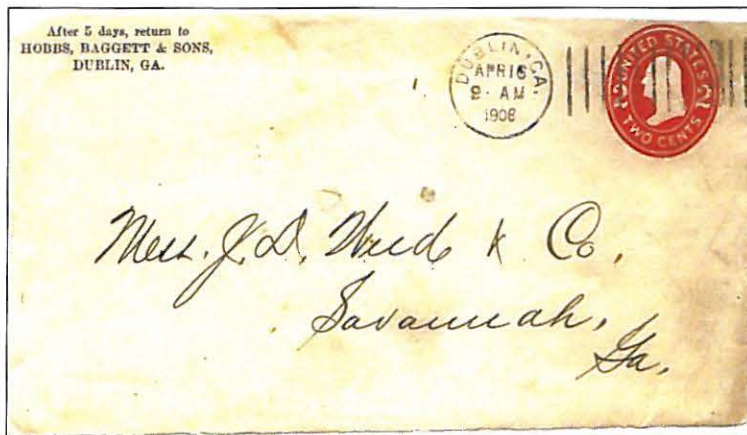 After 5 days, return to
HOBBS, BAGGETT & SONS,
DUBLIN, GA.
DUBLIN, GA.
APR 16
AM
1908
UNITED STATES
2 2
TWO CENTS
Mess. J. D. Weed & Co.
Savannah,
Ga.